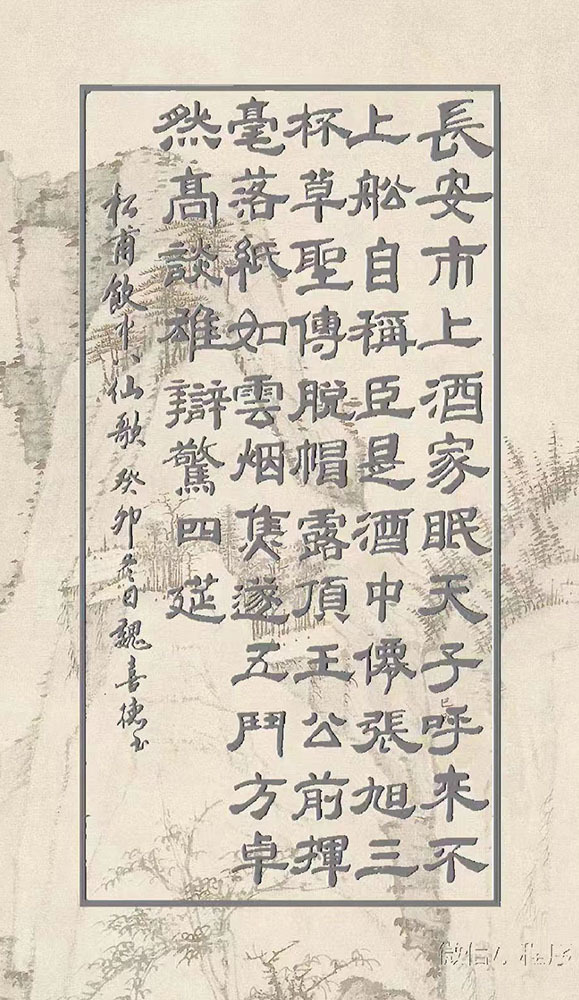 長安市上酒家眠天子呼來不
上舩自稱臣是酒中僊張旭三
杯草聖傳脱帽露頂王公前揮
毫落紙如雲烟焦遂五鬥方卓
然髙談雄辯驚四筵
杜甫飲中八仙歌 癸卯冬日魏喜德书
微信小程序